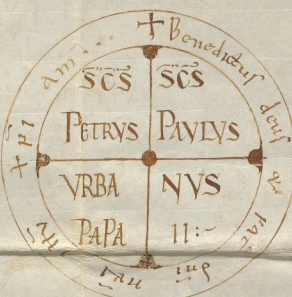 + Benedictus deus & pat dni nri xpi am...
SCS SCS
PETRVS PAVLVS
VRBA NVS
PAPA II:~